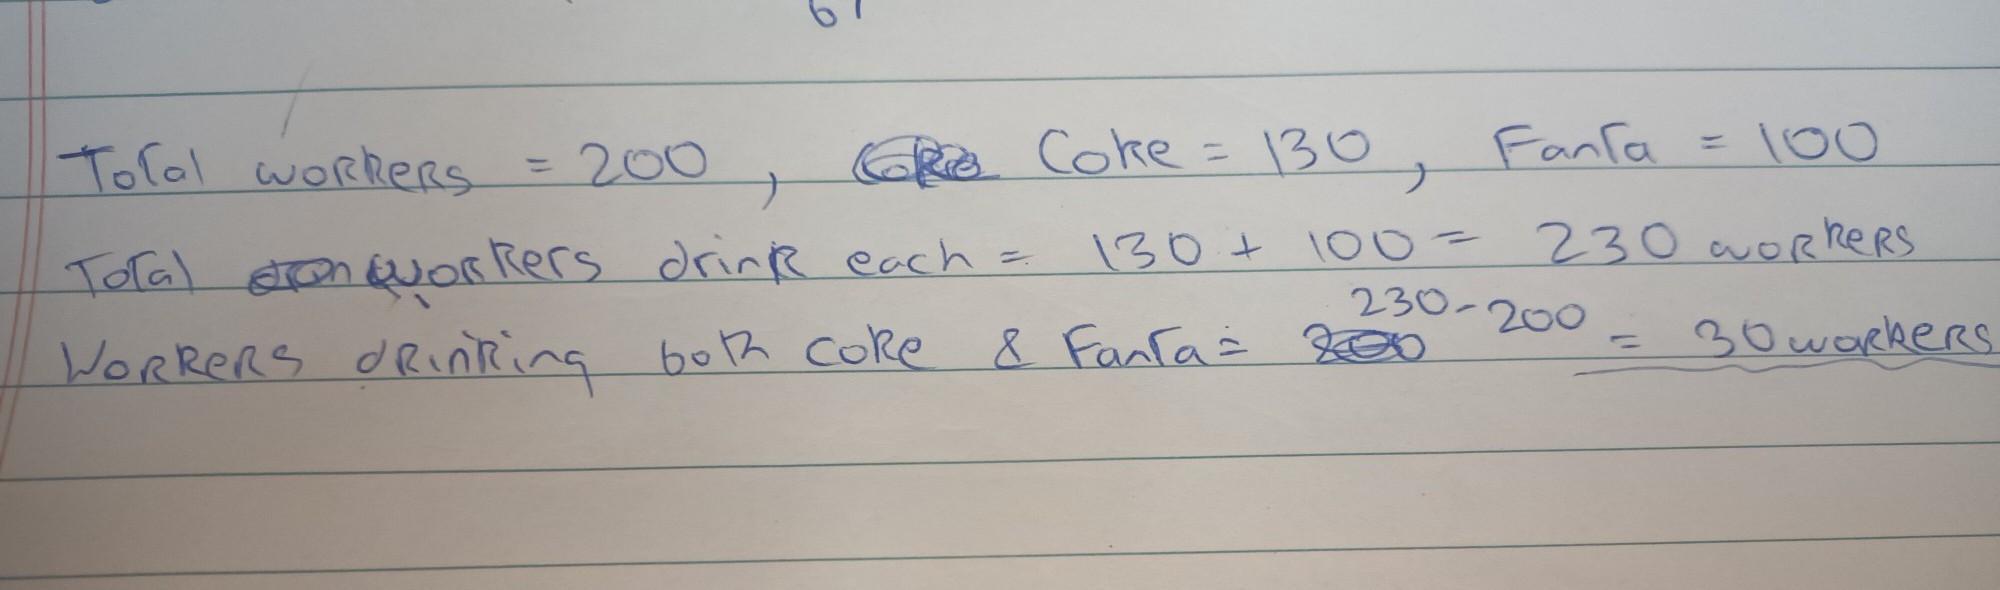 Total workers = 200, Coke = 130, Fanta = 100
Total workers drink each = 130 + 100 = 230 workers
Workers drinking both coke & Fanta = 230-200 = 30 workers